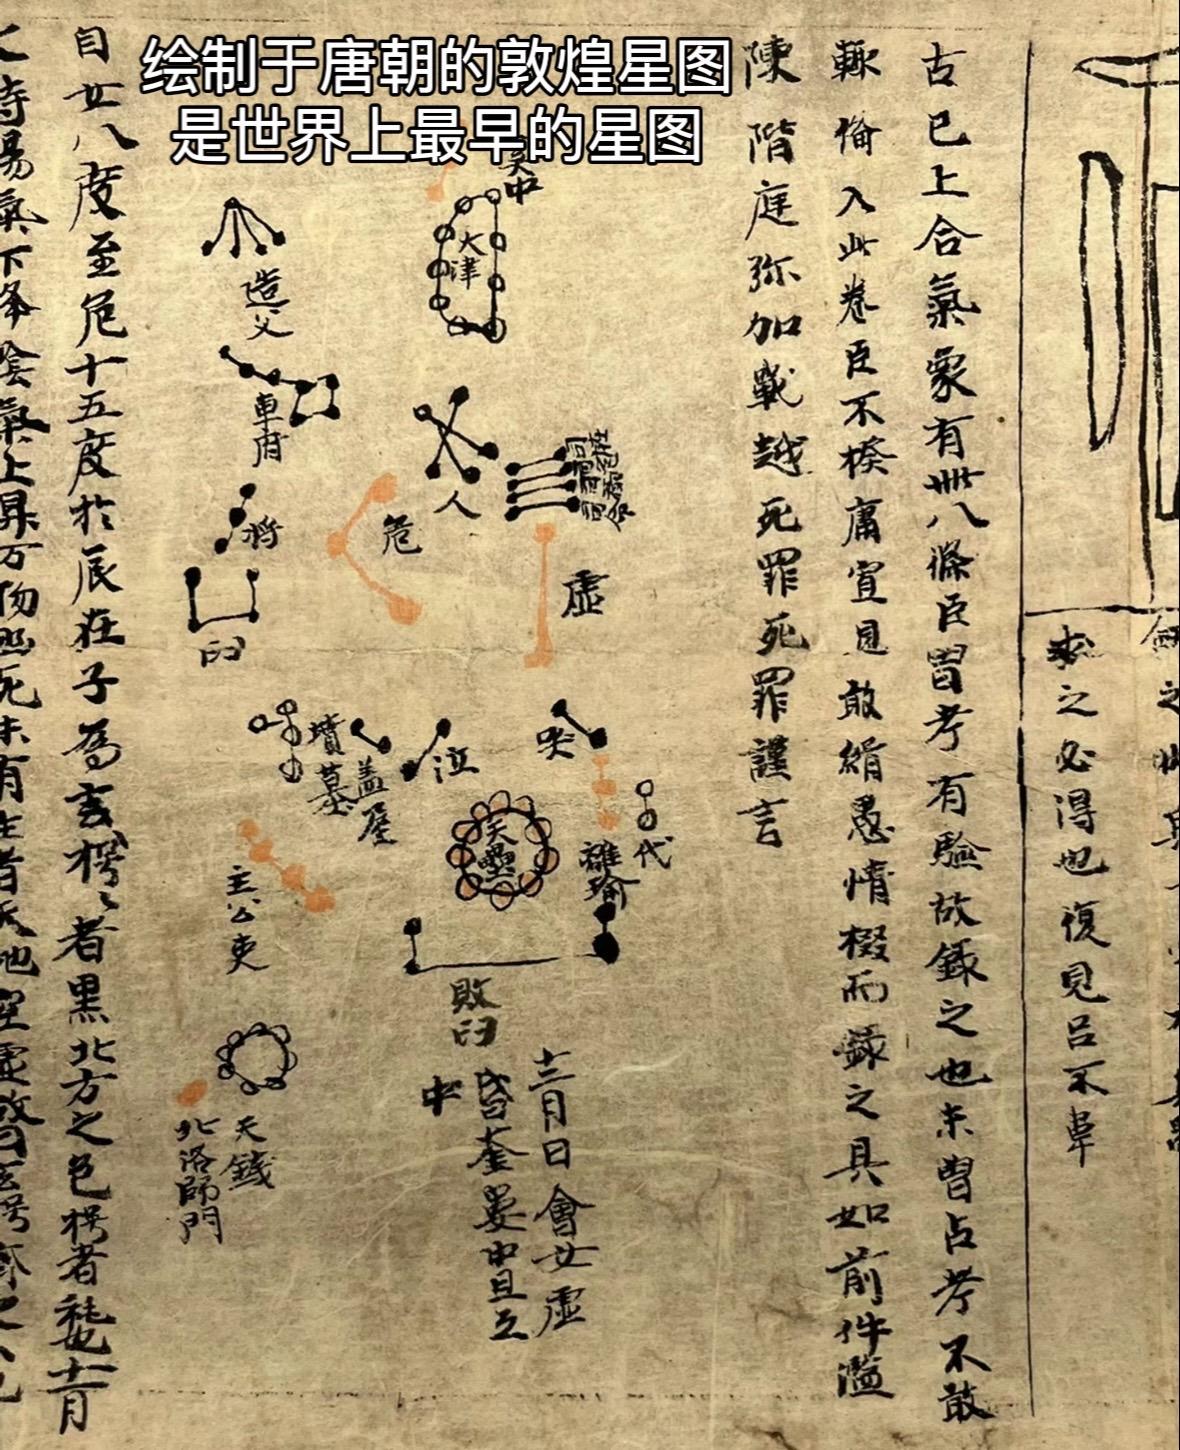 绘制于唐朝的敦煌星图
是世界上最早的星图
之必得也復見吕不韋
古已上合氣象有卌八條臣曽考有驗故録之也未曽占考不敢
輙備入此卷臣不揆庸冝見敢緝愚情掇而録之具如前件濫
陳階庭弥加戰越死罪死罪謹言
天津
造父
車府
人
司命
危
虚
将
臼
哭
泣
墳墓
盖屋
代
天壘
主公吏
敗臼
天錢
北洛師門
十二月日會女虚
昏奎婁中旦互
中
自女八度至危十五度於辰在子為玄枵枵者黒北方之色枵者耗也十一月
之時陽氣下降陰氣上昇万物幽死未有生者天地空虚